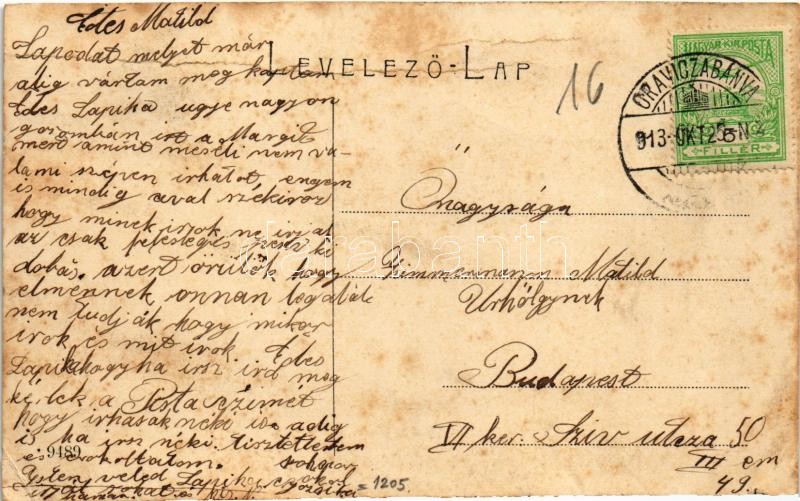 Edes Matild
Lapodat melyet már
alig vártam meg kaptam
Edes Lapika ugye nagyon
gorombán irt a Margit
mert amint meséli nem va-
lami szépen irhatot engem
is mindig aval székiroz
hogy minek irok ne irjal
az csak felesleges pénz ki
dobás. azert örülök hogy
elmennek onnan legalább
nem tudják hogy mikor
irok és mit irok. Edes
Lapika hogyha irsz ird meg
kérlek a Pista czimet
hogy irhasak neki is. addig
is ha irsz neki tiszteltetem
és csokoltatom.
Isten veled Lapika
9489
LEVELEZŐ-LAP
16
MAGYAR KIR. POSTA
FILLÉR
ORAVICZABÁNYA
913 OKT 25 N
Őnagysága
Zimmermann Matild
Urhölgynek
Budapest
VII ker. Sziv utcza 50
III em
49.
= 1205
darabanth